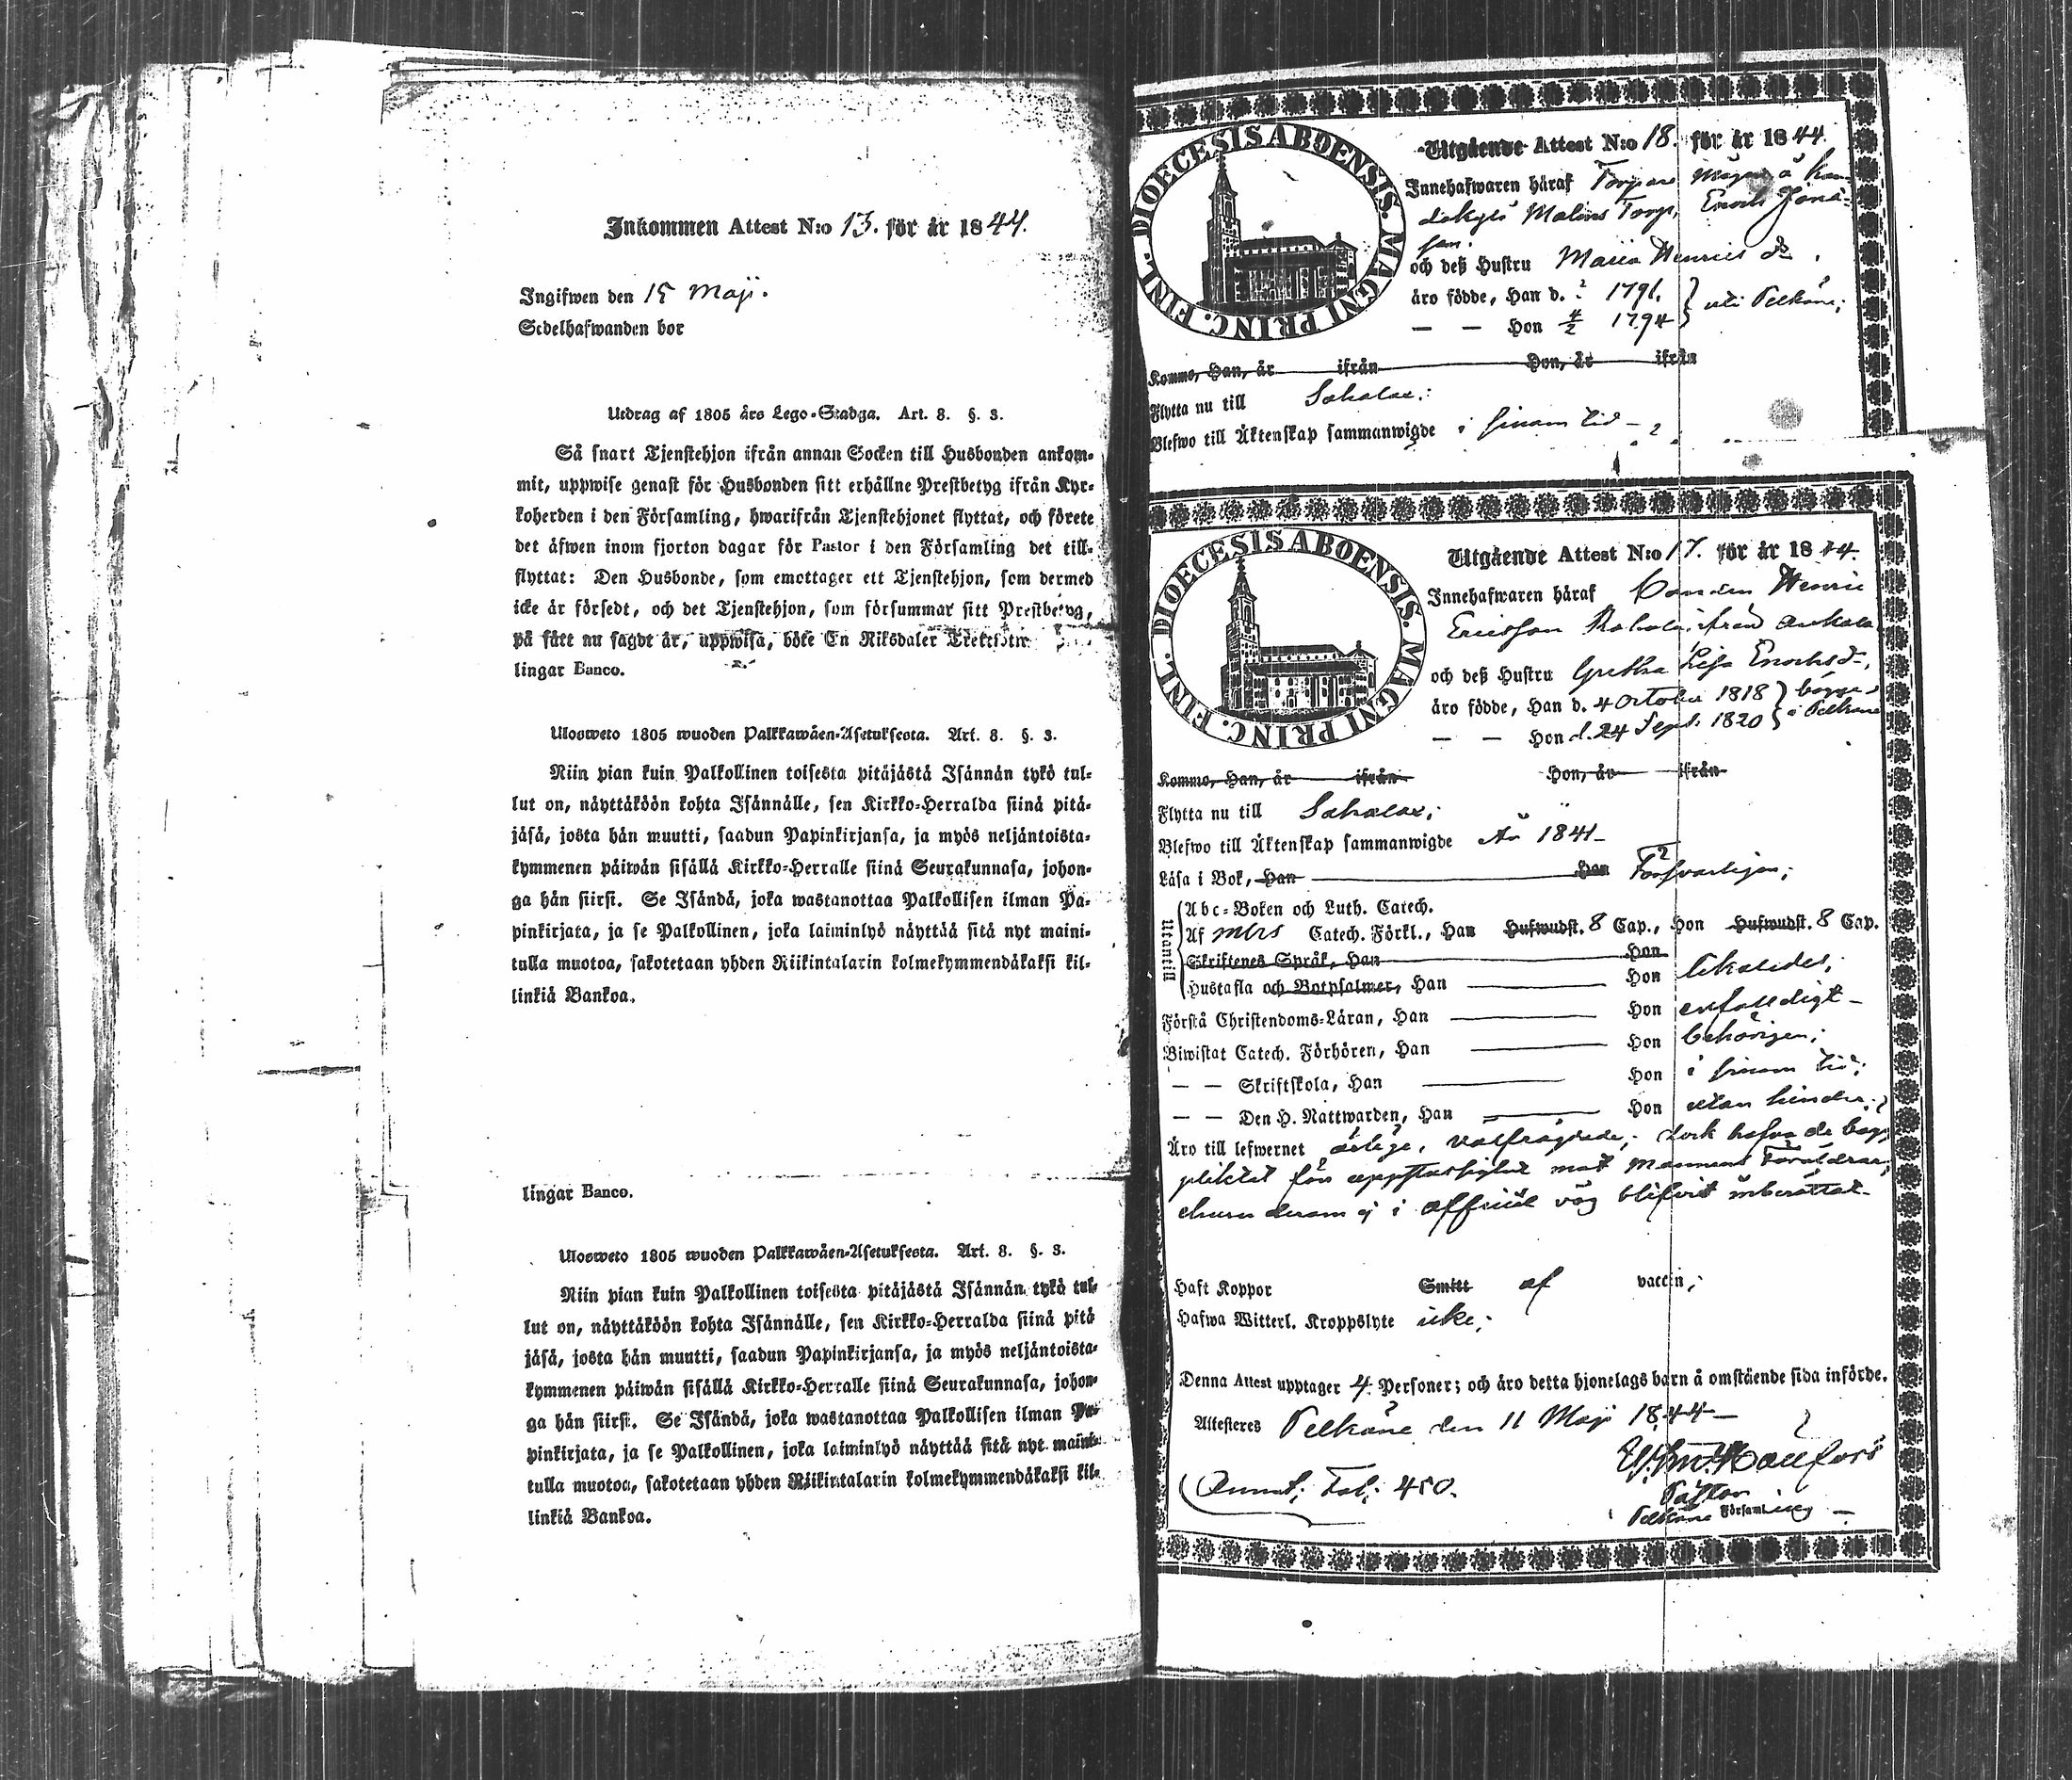 Inkommen Attest N:o 13. för år 1844.
Ingifwen den 15 Maji.
Sedelhafwanden bor
Utdrag af 1805 års Lego-Stadga. Art. 8. §. 3.
Så snart Tjenstehjon ifrån annan Socken till Husbonden ankom-
mit, uppwise genast för Husbonden sitt erhållne Prestbetyg ifrån Kyr-
koherden i den Församling, hwarifrån Tjenstehjonet flyttat, och förete
det äfwen inom fjorton dagar för Pastor i den Församling det till-
flyttat: Den Husbonde, som emottager ett Tjenstehjon, som dermed
icke är försedt, och det Tjenstehjon, som försummar sitt Prestbetyg,
på sått nu sagdt är, uppwisa, böte En Riksdaler
lingar Banco.
Ulosweto 1805 wuoden Palkkawäen-Asetuksesta. Art. 8. §. 3.
Niin pian kuin Palkollinen toisesta pitäjästä Isännän tykö tul-
lut on, näyttäköön kohta Isännälle, sen Kirkko-Herralda siinä pitä-
jäsä, josta hän muutti, saadun Papinkirjansa, ja myös neljäntoista-
kymmenen päiwän sisällä Kirkko-Herralle siinä Seurakunnasa, johon-
ga hän siirsi. Se Isändä, joka wastanottaa Palkollisen ilman Pa-
pinkirjata, ja se Palkollinen, joka laiminlyö näyttää sitä nyt maini-
tulla muotoa, sakotetaan yhden Riikintalarin kolmekymmendäkaksi kil-
linkiä Bankoa.
lingar Banco.
Ulosweto 1805 wuoden Palkkawäen-Asetuksesta. Art. 8. §. 3.
Niin pian kuin Palkollinen toisesta pitäjästä Isännän tykö tul-
lut on, näyttäköön kohta Isännälle, sen Kirkko-Herralda siinä pitä
jäsä, josta hän muutti, saadun Papinkirjansa, ja myös neljäntoista-
kymmenen päiwän sisällä Kirkko-Herralle siinä Seurakunnasa, johon-
ga hän siirsi. Se Isändä, joka wastanottaa Palkollisen ilman Pa-
pinkirjata, ja se Palkollinen, joka laiminlyö näyttää sitä nyt maini-
tulla muotoa, sakotetaan yhden Riikintalarin kolmekymmendäkaksi kil-
linkiä Bankoa.
DIOECESIS ABOENSIS. MAGNI PRINC. FINL.
Utgående Attest N:o 18. för år 1844.
Innehafwaren häraf Torpare
Malins Torp, Enoch Jona-
son.
och deß Hustru Maria Henricsdr,
äro födde, Han d. ? 1791.
— — Hon 4/2 1794 uti Pelkäne;
Komme, Han, år ifrån Hon, år ifrån
Flytta nu till Sahalax;
Blefwo till Äktenskap sammanwigde i sinom tid —
DIOECESIS ABOENSIS. MAGNI PRINC. FINL.
Utgående Attest N:o 17. för år 1844.
Innehafwaren häraf Bonden Henric
Ericsson ifrån
och deß Hustru Gretha Lisa Enochsdr,
äro födde, Han d. 4 October 1818 bägge
— — Hon d. 24 Sept. 1820 i Pelkäne
Komme, Han, år ifrån Hon, år ifrån
Flytta nu till Sahalax;
Blefwo till Äktenskap sammanwigde År 1841 —
Läsa i Bok, Han Hon Försvarligen;
Utantill
Abc-Boken och Luth. Catech.
Af Catech. Förkl., Han Hufwudst. 8 Cap., Hon Hufwudst. 8 Cap.
Skriftenes Språk, Han Hon
Hustafla och Botpsalmer, Han Hon likaledes;
Förstå Christendoms-Läran, Han Hon enfaldigt —
Biwistat Catech. Förhören, Han Hon behörigen;
— — Skriftskola, Han Hon i sinom tid;
— — Den H. Nattwarden, Han Hon utan hinder;
Äro till lefwernet ärlige, välfrägdade; dock hafva de
pliktat för uppstudsighet mot Mannens Föräldrar,
ehuru derom ej i officiel väg blifvit inberättat.
Haft Koppor Smitt af vaccin;
Hafwa Witterl. Kroppslyte icke;
Denna Attest upptager 4. Personer; och äro detta hjonelags barn å omstående sida införde.
Attesteres Pelkäne den 11 Maji 1844 —
Annot. Fol. 450.
Pastor
Pelkäne Församling —